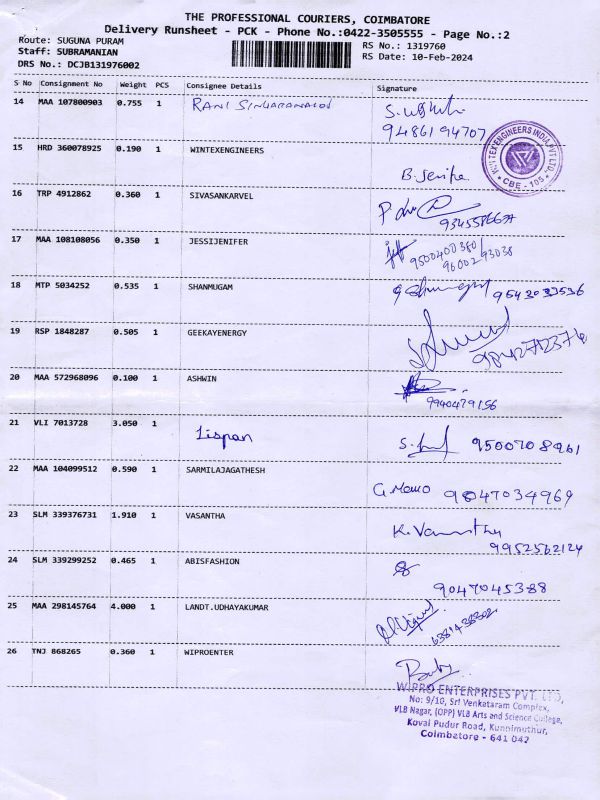 THE PROFESSIONAL COURIERS, COIMBATORE
Delivery Runsheet - PCK - Phone No.:0422-3505555 - Page No.:2
Route: SUGUNA PURAM
Staff: SUBRAMANIAN
DRS No.: DCJB131976002
RS No.: 1319760
RS Date: 10-Feb-2024
S No Consignment No Weight PCS Consignee Details Signature
14 MAA 107800903 0.755 1 RANI
9486194707
15 HRD 360078925 0.190 1 WINTEXENGINEERS
WINTEX ENGINEERS INDIA PVT LTD.
CBE - 105
16 TRP 4912862 0.360 1 SIVASANKARVEL
17 MAA 108108056 0.350 1 JESSIJENIFER
9500400380/
9600293038
18 MTP 5034252 0.535 1 SHANMUGAM
9543033536
19 RSP 1848287 0.505 1 GEEKAYENERGY
20 MAA 572968096 0.100 1 ASHWIN
9940479156
21 VLI 7013728 3.050 1 Lispan
9500708961
22 MAA 104099512 0.590 1 SARMILAJAGATHESH
9047034969
23 SLM 339376731 1.910 1 VASANTHA
K. Vasantha
9952562124
24 SLM 339299252 0.465 1 ABISFASHION
9047045388
25 MAA 298145764 4.000 1 LANDT.UDHAYAKUMAR
26 TNJ 868265 0.360 1 WIPROENTER
WIPRO ENTERPRISES PVT. LTD,
No: 9/10, Sri Venkataram Complex,
VLB Nagar, (OPP) VLB Arts and Science College,
Kovai Pudur Road, Kunnimuthur,
Coimbatore - 641 042